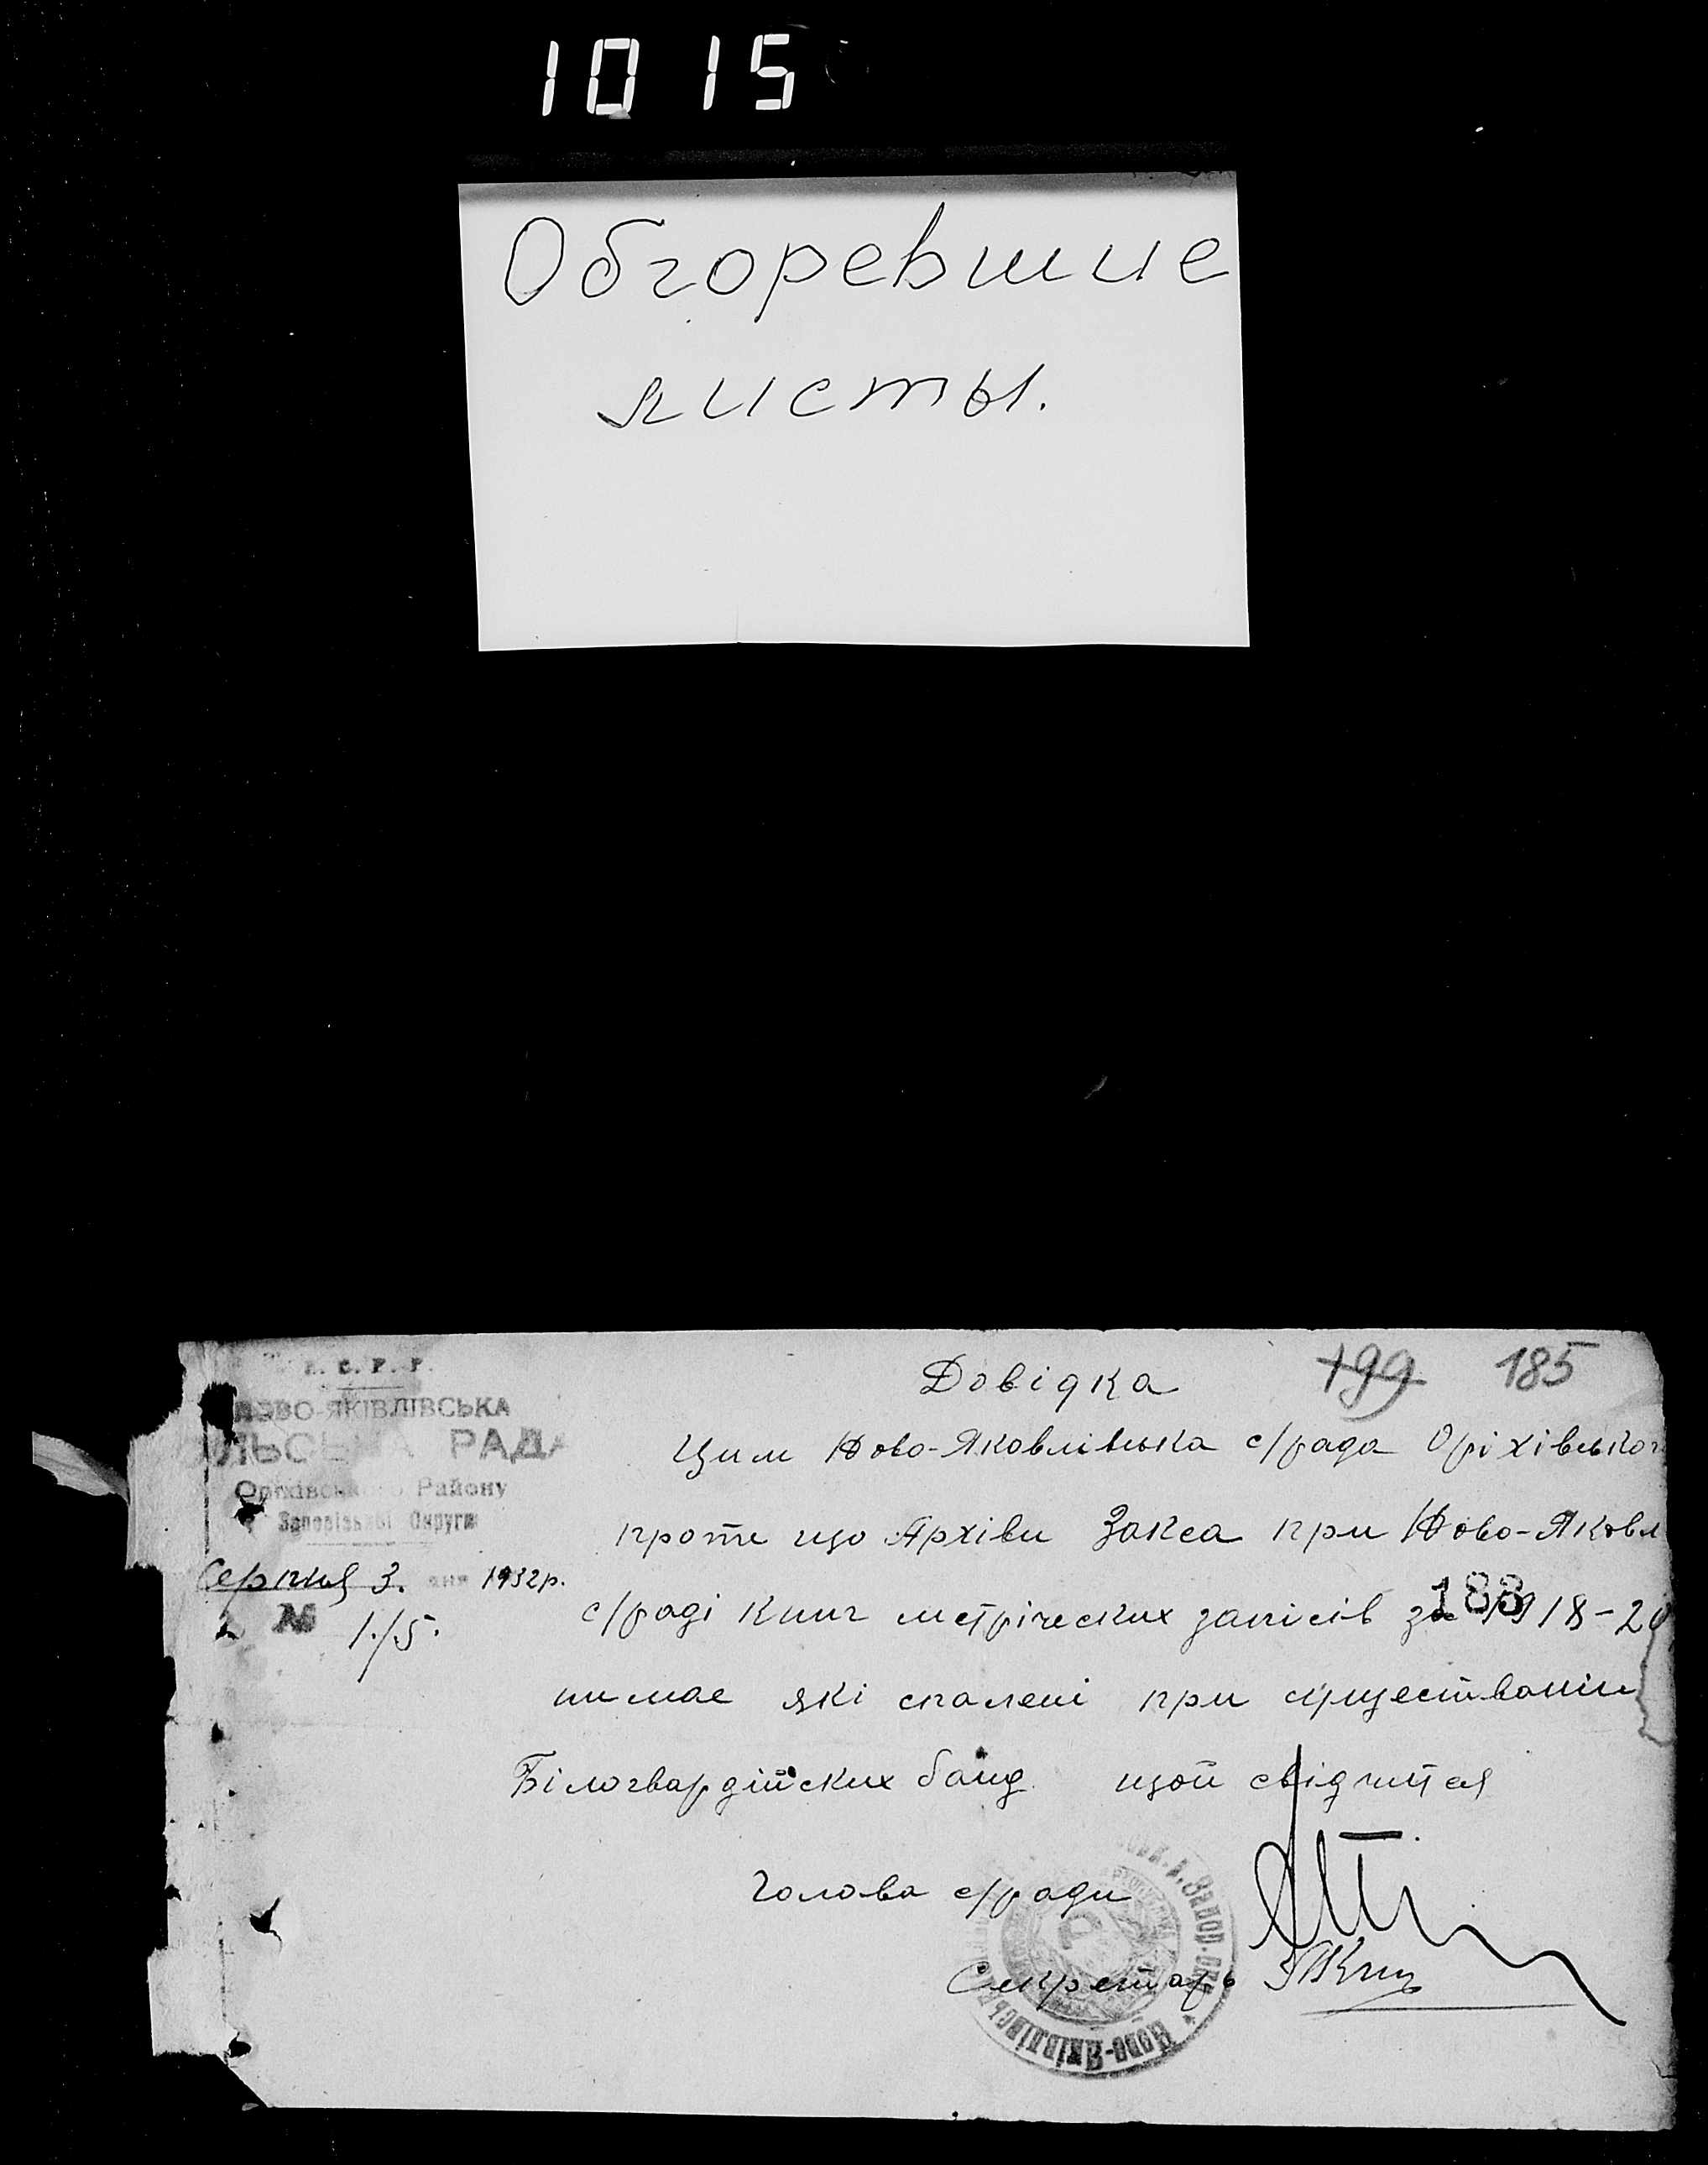 1015
Обгоревшие
листы.
С. Р. Р.
НОВО-ЯКІВЛІВСЬКА
ЛЬСЬКА РАДА
Оріхівського Району
Запорізької Округи
Серпня 3. дня 1932р.
№ 1/5.
199 185
Довідка
Цим Ново-Яковлівська с/рада Оріхівського
проте що Архіви Загса при Ново-Яковл
183
с/раді книг метрических записів за 1918-20
нимае які спалені при существании
Білогвардійских банд що й свідчится
Голова с/ради
Секретарь
НОВО-ЯКІВЛІВСЬК
ЗАПОР. ОКР.